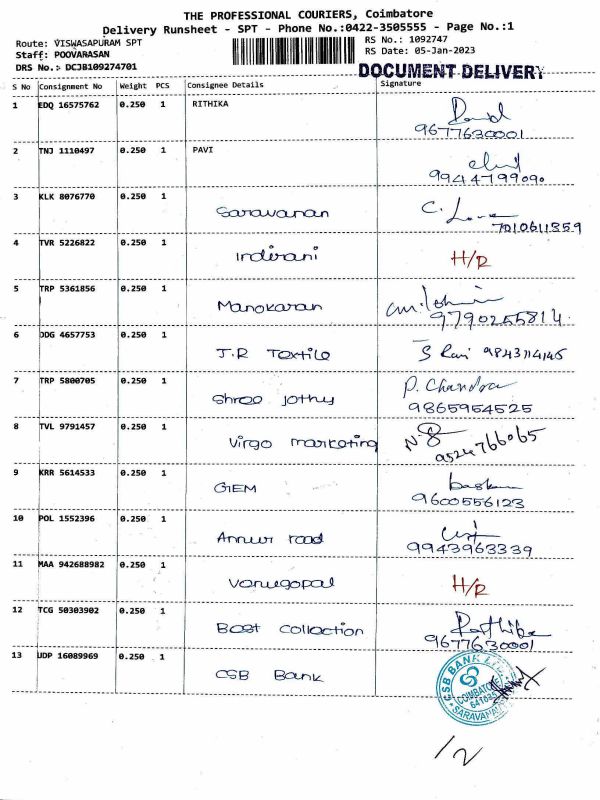 THE PROFESSIONAL COURIERS, Coimbatore
Delivery Runsheet - SPT - Phone No.:0422-3505555 - Page No.:1
Route: VISWASAPURAM SPT
RS No.: 1092747
Staff: POOVARASAN
RS Date: 05-Jan-2023
DRS No.: DCJB109274701
DOCUMENT DELIVERY
S No Consignment No Weight PCS Consignee Details Signature
1 EDQ 16575762 0.250 1 RITHIKA
9677630001
2 TNJ 1110497 0.250 1 PAVI
9944799090
3 KLK 8076770 0.250 1 Saravanan
7010611859
4 TVR 5226822 0.250 1 Indirani H/R
5 TRP 5361856 0.250 1 Manokaran
9790255814
6 DDG 4657753 0.250 1 J.R Textile S Ravi 9843114145
7 TRP 5800705 0.250 1 Shree Jothy P. Chandra
9865954525
8 TVL 9791457 0.250 1 Virgo marketing
9524766065
9 KRR 5614533 0.250 1 GEM baskar
9600556123
10 POL 1552396 0.250 1 Annur road
9943963339
11 MAA 942688982 0.250 1 Vanugopal H/R
12 TCG 50303902 0.250 1 Best collection Rathika
9677630001
13 UDP 16089969 0.250 1 CSB Bank
CSB BANK
COIMBATORE
641035
1/2